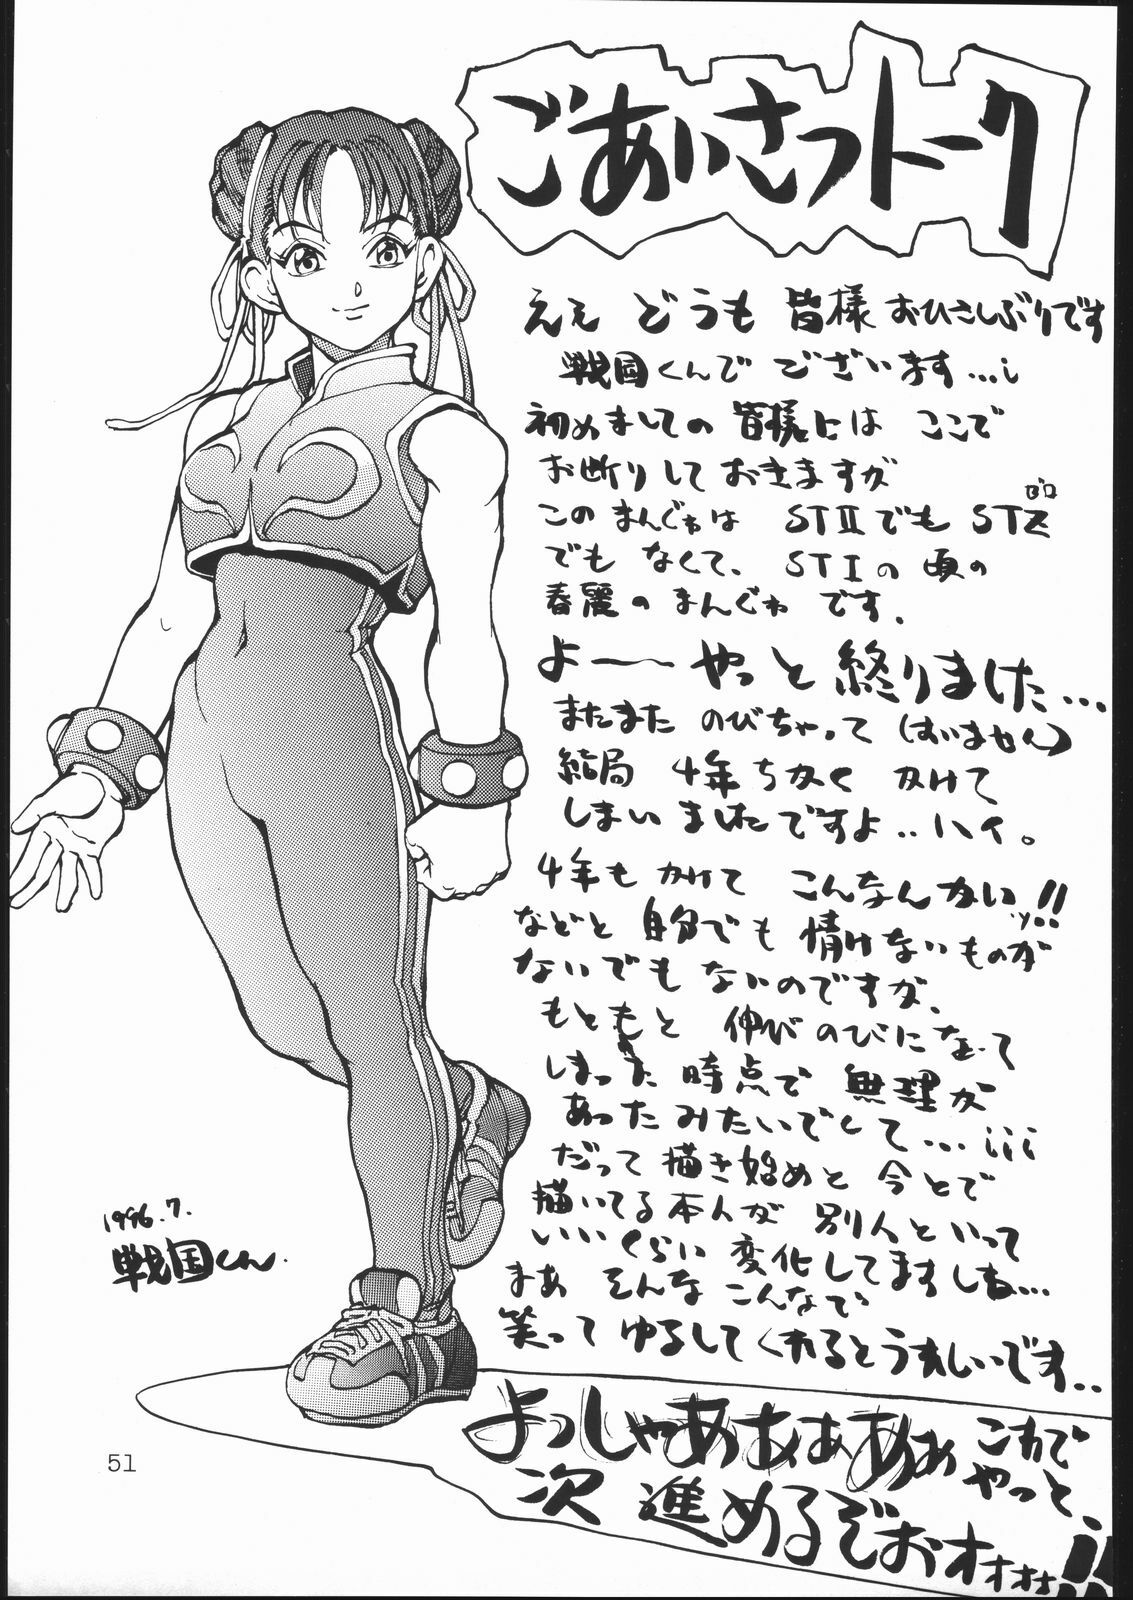 ごあいさつトーク
ええ どうも 皆様 おひさしぶりです
戦国くんで ございます…
初めましての 皆様には ここで
お断りして おきますが
このまんがは STⅡでも STZ
ゼロ
でもなくて、STⅠの頃の
春麗のまんが です.
よーーやっと終りました…
またまた のびちゃって (すいません)
結局 4年ちかく かけて
しまいましたですよ..ハイ。
4年も かけて こんなんかい!!
などと 自分でも 情けないものが
ないでもないのですが、
もともと 伸びのびになって
しまった 時点で 無理が
あったみたいでして…
だって描き始めと 今とで
描いてる本人が 別人といって
いいくらい 変化してますしね…
まあ そんな こんなで
笑って ゆるしてくれるとうれしいです..
よっしゃあああああ これで
やっと、
次 進めるぞおオォォォ!!
1996.7.
戦国くん.
51